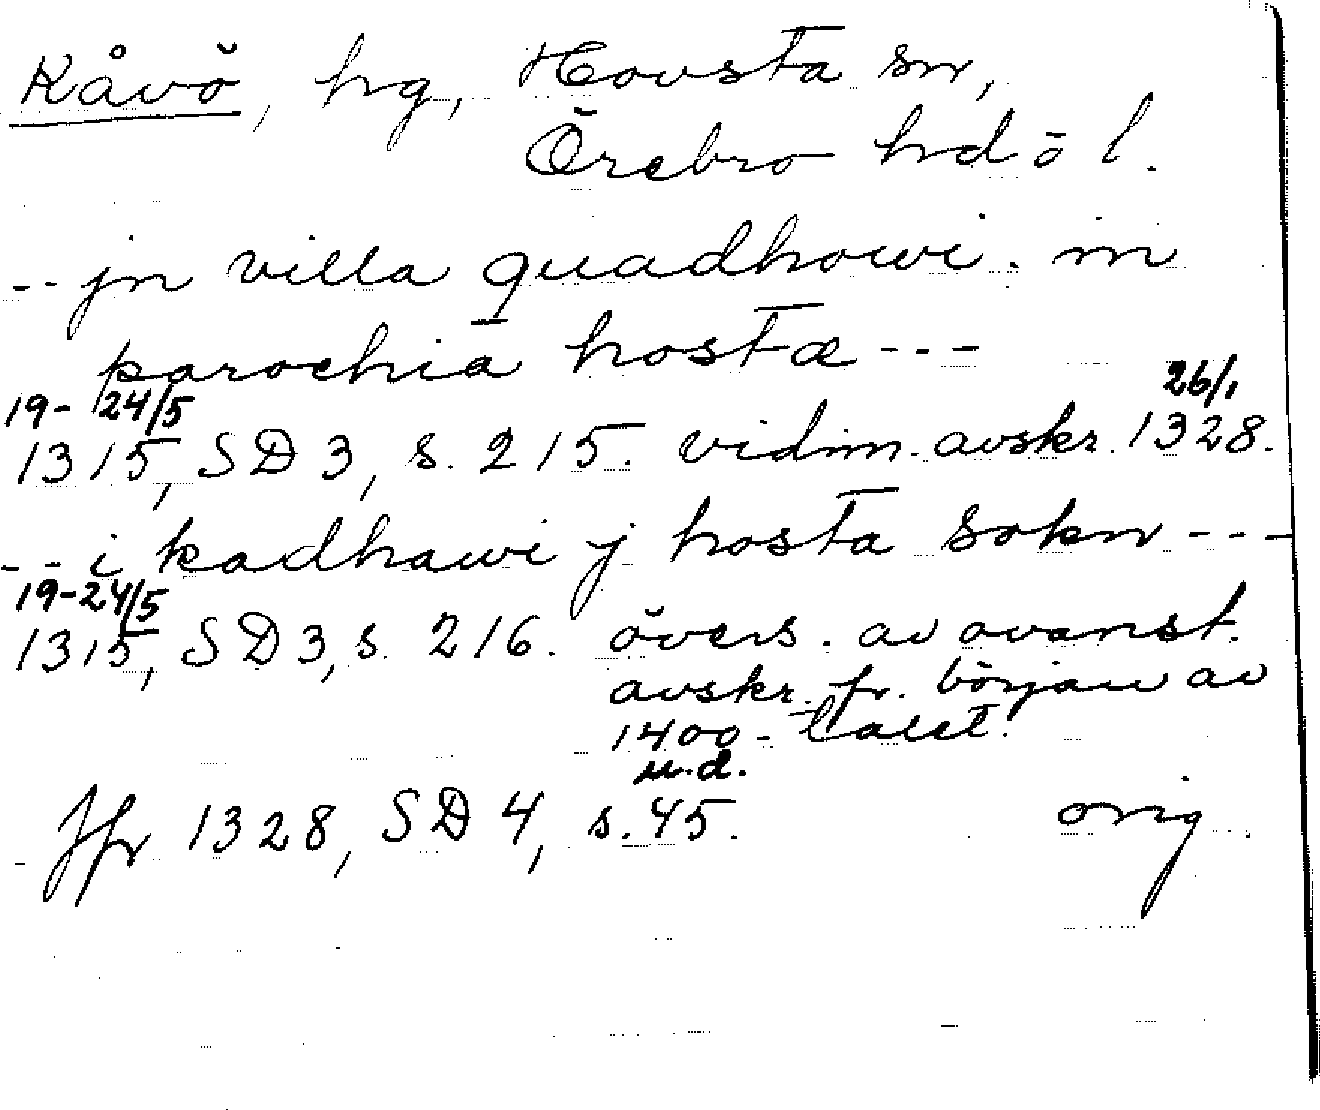 Kåvö, hg, Hovsta sn,
Örebro hd ö l.
-- jn villa quadhowi . in
parochia hosta ---
19-24/5 26/1
1315, SD 3, s. 215. vidim. avskr. 1328.
-- i kadhawi j hosta sokn ---
19-24/5
1315, SD 3, s. 216. övers. av ovanst.
avskr. fr. början av
1400-talet.
u.d.
Jfr 1328, SD 4, s. 45. orig.